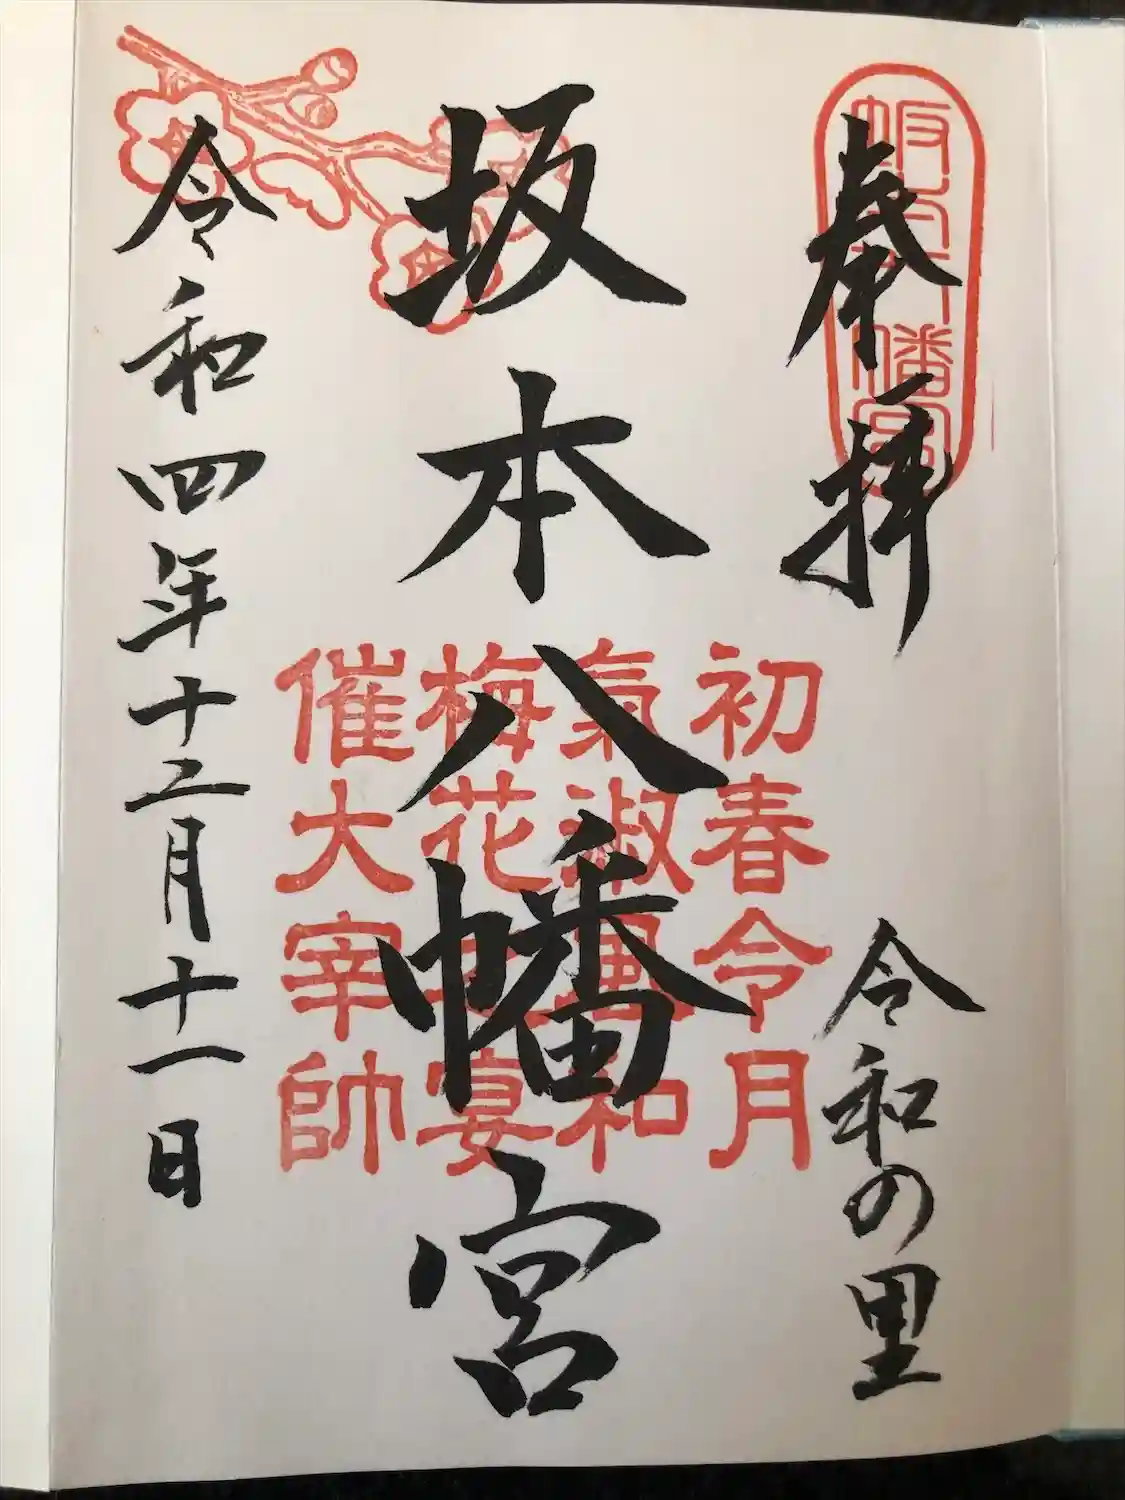 奉拝
令和の里
坂本八幡宮
初春令月
氣淑風和
梅花之宴
催大宰帥
令和四年十二月十一日